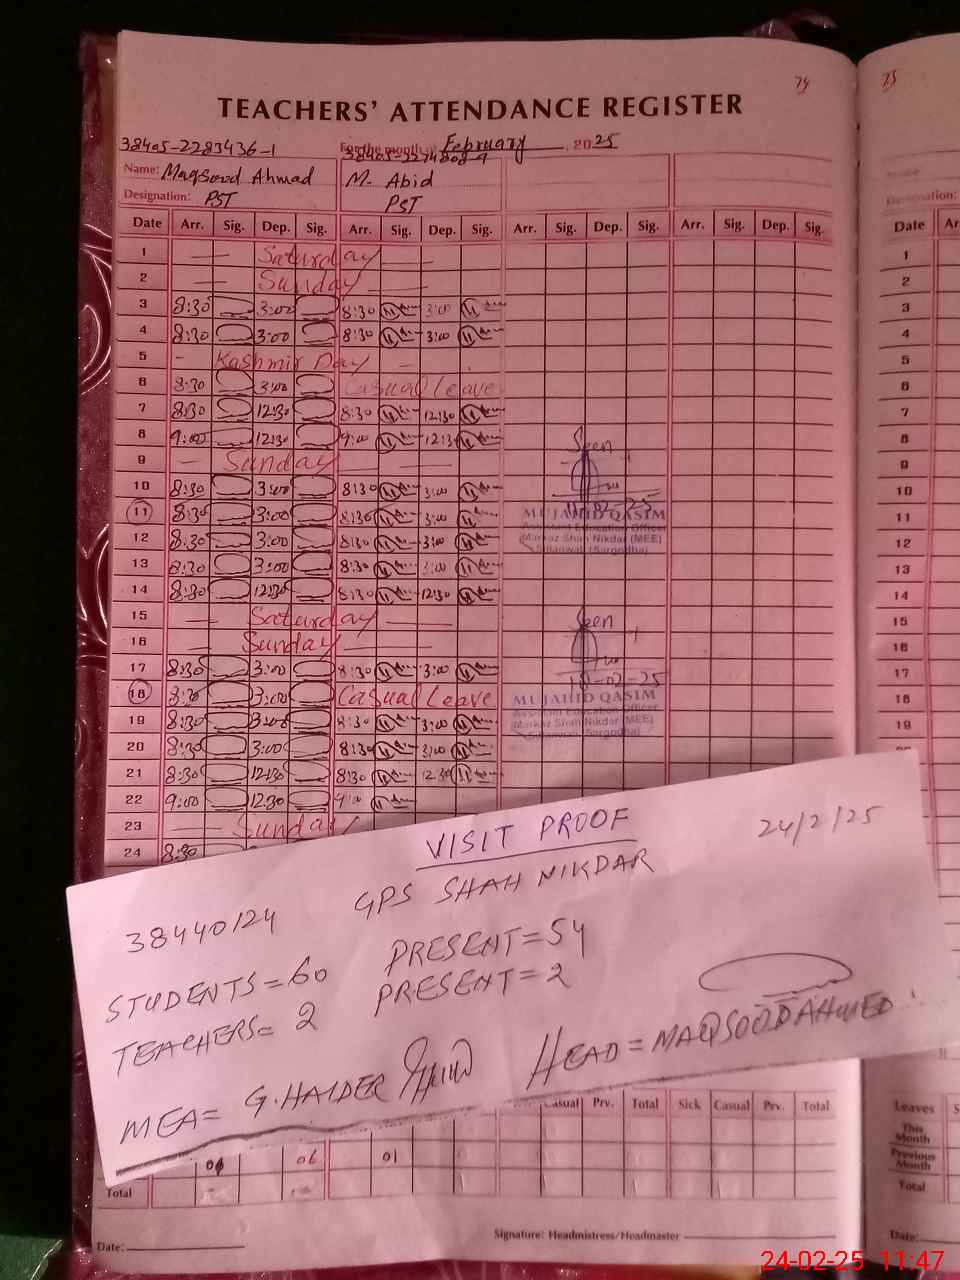 74
75
TEACHERS' ATTENDANCE REGISTER
38405-2283436-1
For the month of February, 2025
Name: Maqsood Ahmad
M. Abid
Designation: PST
PST
Date Arr. Sig. Dep. Sig. Arr. Sig. Dep. Sig. Arr. Sig. Dep. Sig. Arr. Sig. Dep. Sig.
Date
1 — Saturday —
2 — Sunday —
3 8:30 3:00 8:30 3:00
4 8:30 3:00 8:30 3:00
5 - Kashmir Day -
6 8:30 3:00 Casual Leave
7 8:30 12:30 8:30 12:30
8 9:00 12:30 9:00 12:30
9 — Sunday — —
10 8:30 3:00 8:30 3:00
11 8:30 3:00 8:30 3:00
12 8:30 3:00 8:30 3:00
13 8:30 3:00 8:30 3:00
14 8:30 12:30 8:30 12:30
15 — Saturday —
16 — Sunday —
17 8:30 3:00 8:30 3:00
18 8:30 3:00 Casual Leave
19 8:30 3:00 8:30 3:00
20 8:30 3:00 8:30 3:00
21 8:30 12:30 8:30 12:30
22 9:00 12:30 9:00
23 — Sunday
24 8:30
Seen
MUJAHID QASIM
Assistant Education Officer
Markaz Shah Nikdar (MEE)
Sillanwali (Sargodha)
Seen
18-02-25
MUJAHID QASIM
Assistant Education Officer
Markaz Shah Nikdar (MEE)
Sillanwali (Sargodha)
1
2
3
4
5
6
7
8
9
10
11
12
13
14
15
16
17
18
19
VISIT PROOF
24/2/25
38440124 GPS SHAH NIKDAR
STUDENTS = 60 PRESENT = 54
TEACHERS = 2 PRESENT = 2
MEA = G. HAIDER HEAD = MAQSOOD AHMED
Casual Prv. Total Sick Casual Prv. Total
Leaves
This Month
Previous Month
Total
06 01
Total
Date:
Signature: Headmistress/Headmaster
Date:
24-02-25 11:47